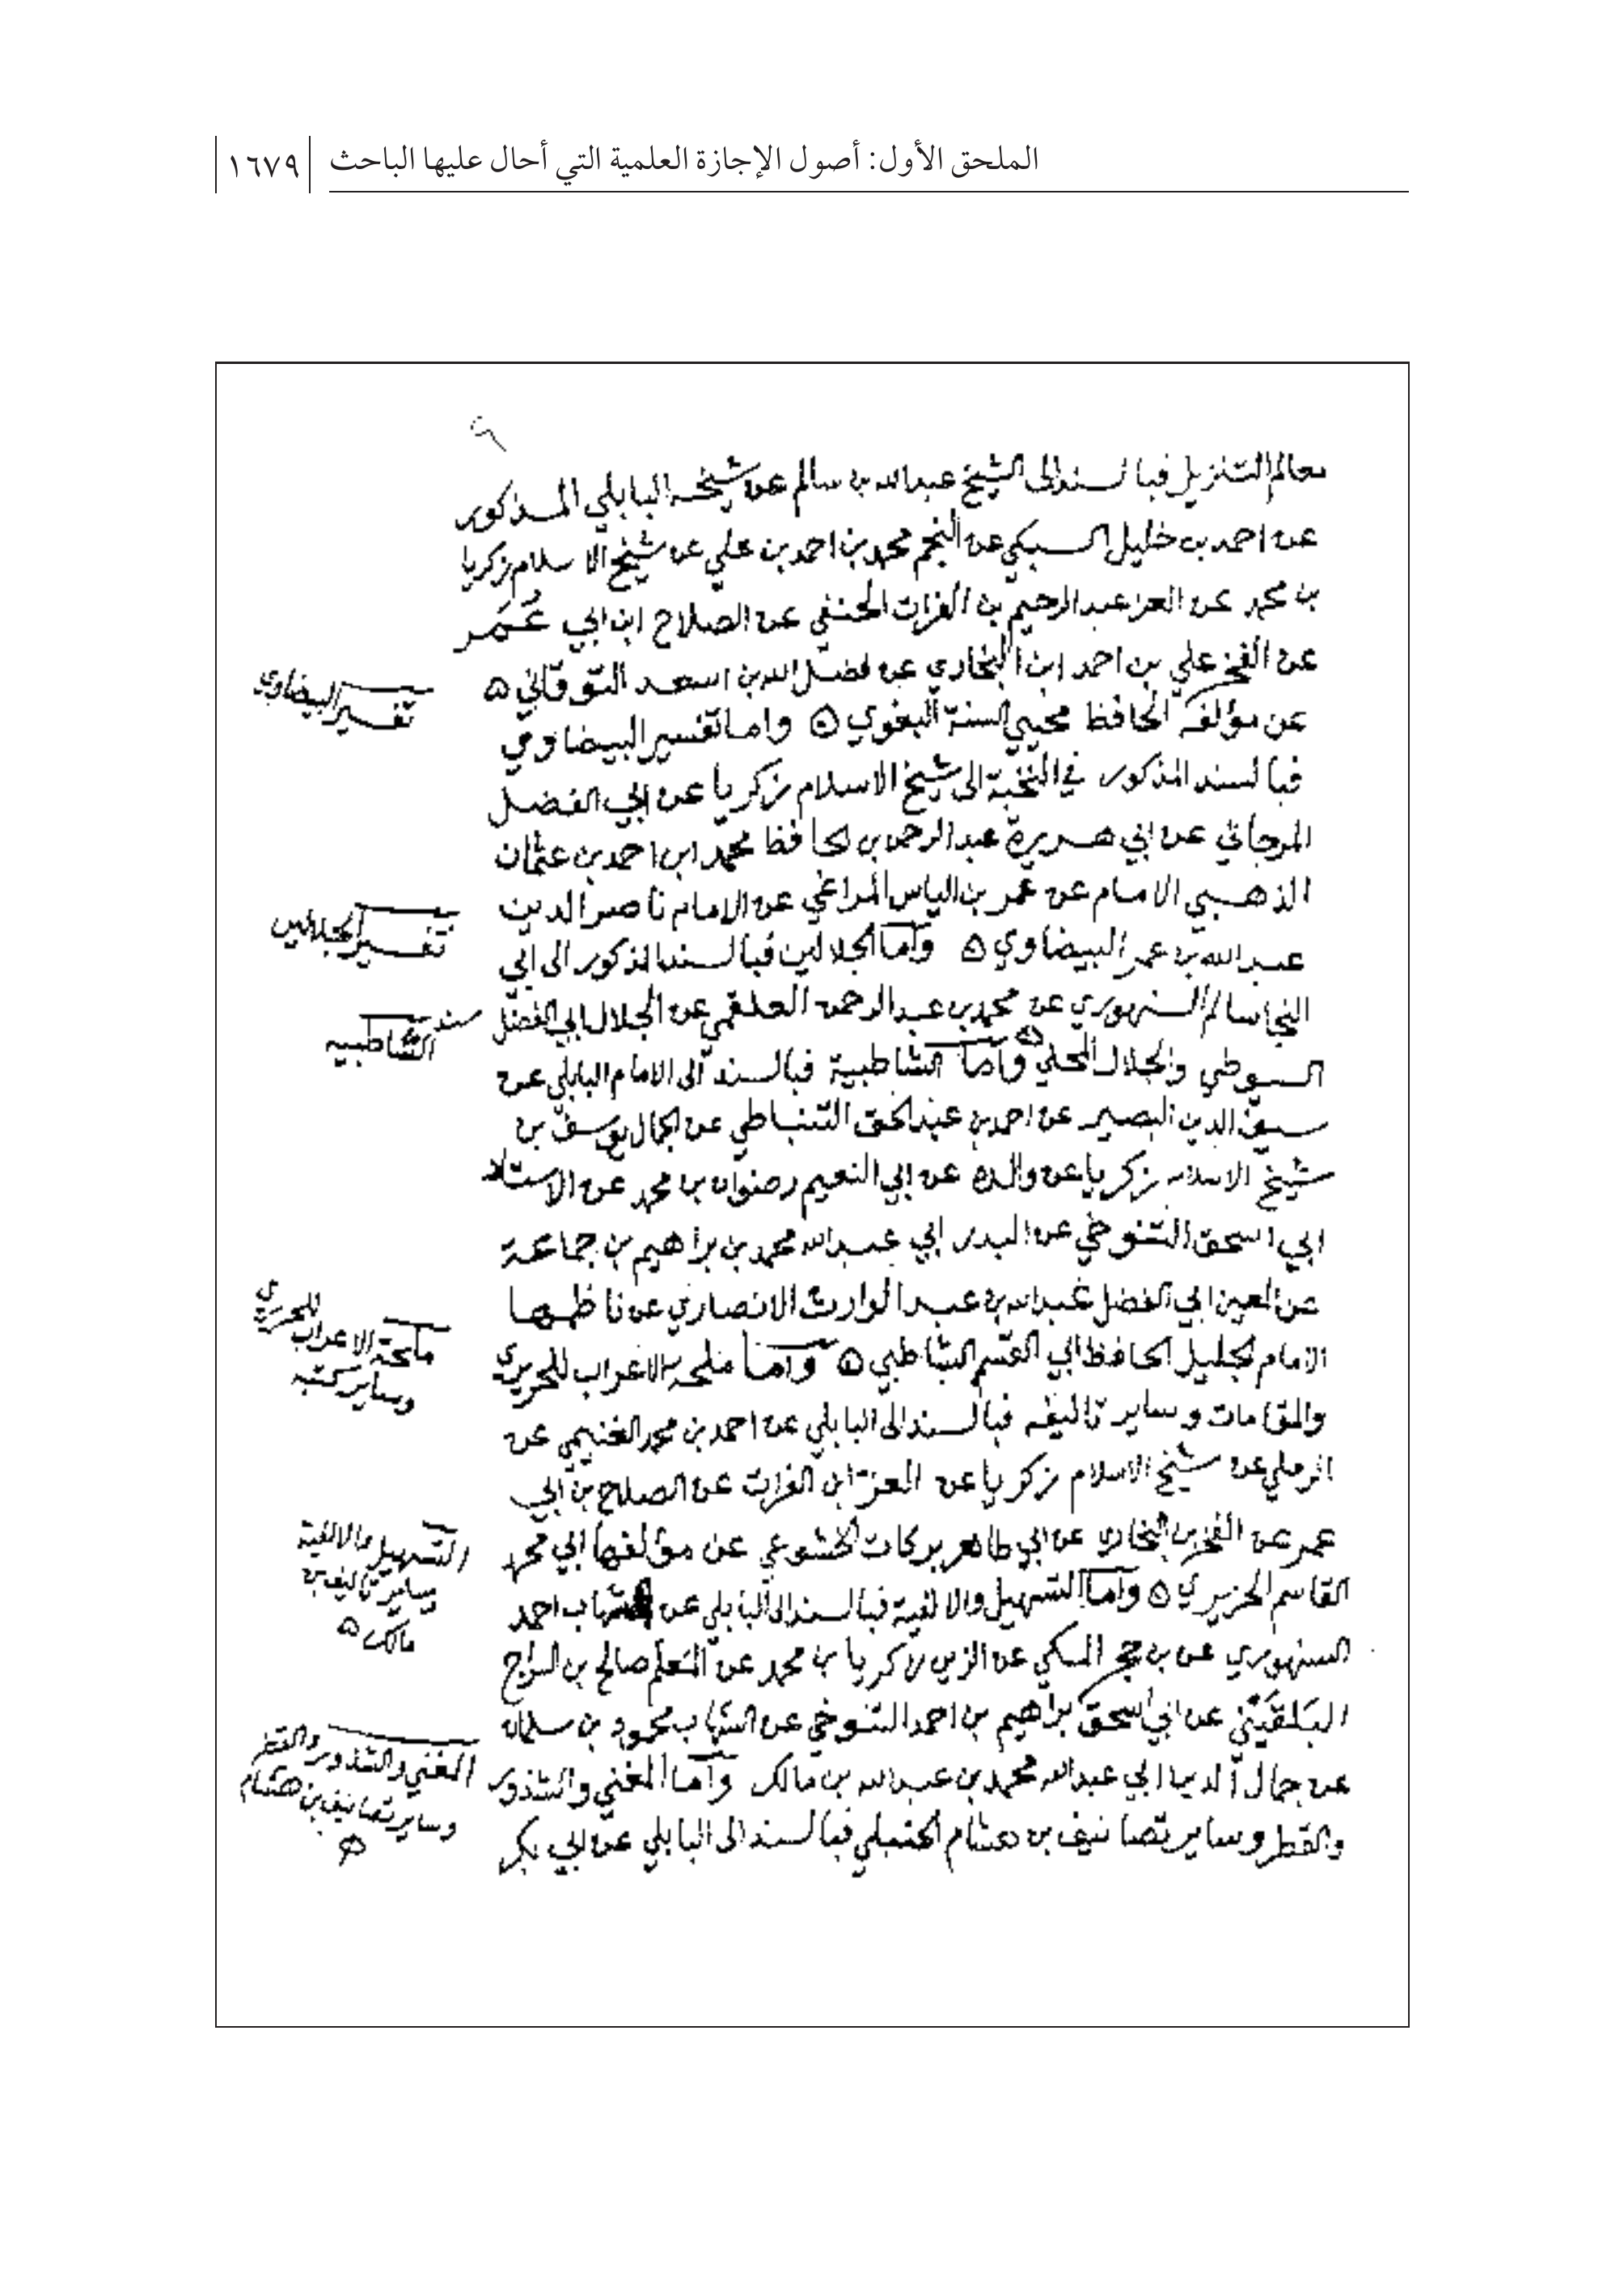 الملحق الأول: أصول الإجازة العلمية التي أحال عليها الباحث ١٦٧٩
معالم التنزيل فبالسند الى الشيخ عبدالله بن سالم عن شيخه البابلي المذكور
عن احمد بن خليل السبكي عن النجم محمد بن احمد بن علي عن شيخ الاسلام زكريا
بن محمد عن العز عبدالرحيم بن الفرات الحنفي عن الصلاح ابن ابي عُمَر
عن الفخر علي بن احمد ابن البخاري عن فضل الله بن اسعد التوقاني
عن مؤلفه الحافظ محيي السنة البغوي واما تفسير البيضاوي
تفسير البيضاوي
فبالسند المذكور في النخبة الى شيخ الاسلام زكريا عن ابي الفضل
المرجاني عن ابي هريرة عبدالرحمن بن الحافظ محمد ابن احمد بن عثمان
الذهبي الامام عن عمر بن الياس المراغي عن الامام ناصر الدين
عبدالله بن عمر البيضاوي واما الجلالين فبالسند المذكور الى ابي
تفسير الجلالين
النجا سالم السنهوري عن محمد بن عبدالرحمن العلقمي عن الجلال ابي الفضل
السيوطي والجلال المحلي واما الشاطبية فبالسند الى الامام البابلي عن
سند الشاطبيه
سيف الدين البصير عن احمد بن عبدالحق السنباطي عن الجمال يوسف بن
شيخ الاسلام زكريا عن والده عن ابي النعيم رضوان بن محمد عن الاستاد
ابي اسحق التنوخي عن البدر ابي عبدالله محمد بن براهيم بن جماعة
عن المعين ابي الفضل عبدالله بن عبدالوارث الانصاري عن ناظمها
الامام الجليل الحافظ ابي القسم الشاطبي واما ملحة الاعراب للحريري
ملحة الاعراب للحريري
وساير كتبه
والمقامات وساير تاليفه فبالسند الى البابلي عن احمد بن محمد الغنيمي عن
الرملي عن شيخ الاسلام زكريا عن العز ابن الفرات عن الصلاح بن ابي
عمر عن الفخر بن البخاري عن ابي طاهر بركات الخشوعي عن مؤلفها ابي محمد
القاسم الحريري واما التسهيل والالفية فبالسند الى البابلي عن الشهاب احمد
التسهيل والالفية
وساير تاليف بن
مالك
السنهوري عن بن حجر المكي عن الزين زكريا بن محمد عن المعلم صالح بن السراج
البَلقيني عن ابي اسحق براهيم بن احمد التنوخي عن الشهاب محمود بن سلمان
عن جمال الدين ابي عبدالله محمد بن عبدالله بن مالك واما المغني والشذور
المغني والشذور والقطر
وساير تصانيف بن هشام
والقطر وساير تصانيف بن هشام الحنبلي فبالسند الى البابلي عن ابي بكر